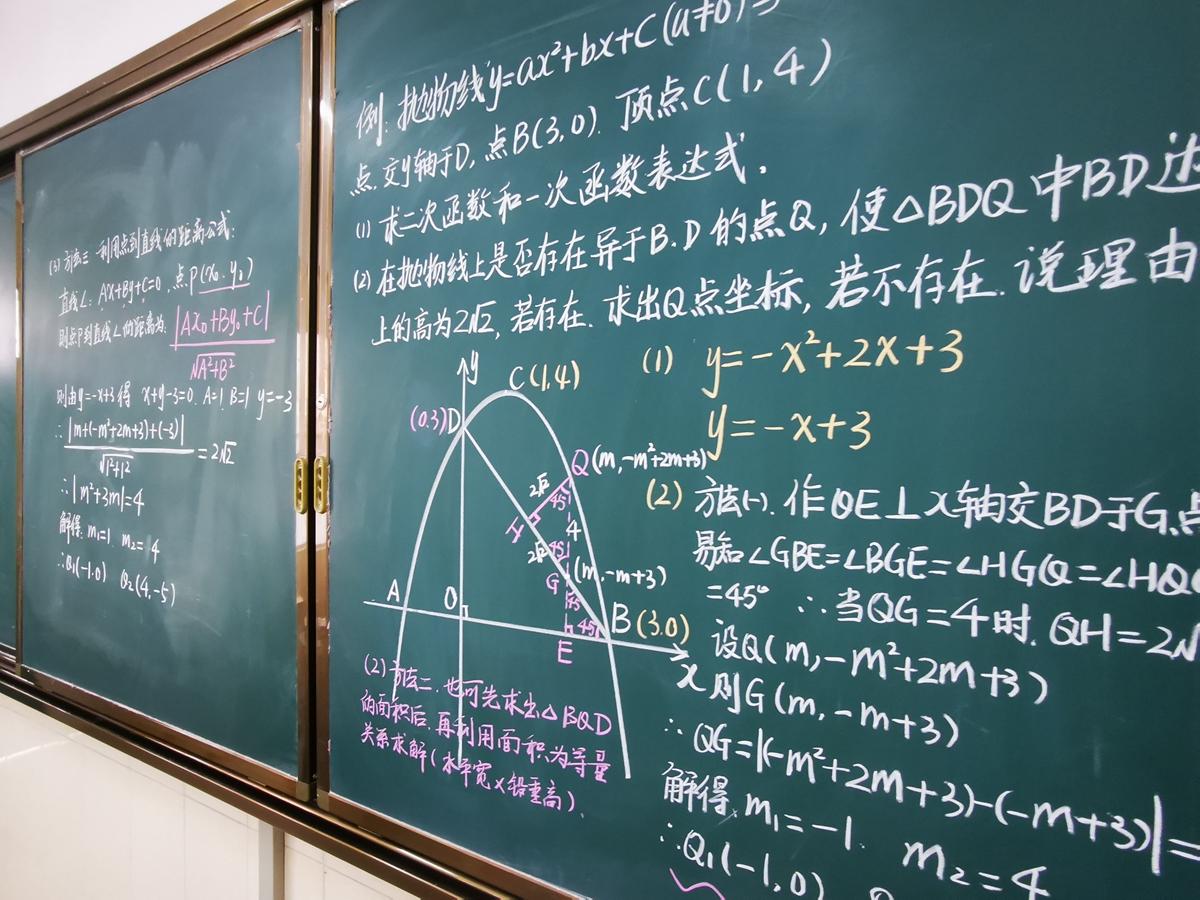 (3) 方法三 利用点到直线的距离公式:
直线L: Ax+By+C=0, 点P(x₀. y₀)
则点P到直线L的距离为: |Ax₀+By₀+C|
√A²+B²
则由y=-x+3得 x+y-3=0. A=1. B=1 y=-3
∴ |m+(-m²+2m+3)+(-3)|
√1²+1²
=2√2
∴|m²+3m|=4
解得: m₁=1. m₂= 4
∴Q₁(-1.0) Q₂(4,-5)
例: 抛物线y=ax²+bx+C(a≠0)
点.交y轴于D, 点B(3,0). 顶点C(1,4)
(1) 求二次函数和一次函数表达式.
(2) 在抛物线上是否存在异于B.D的点Q, 使△BDQ中BD边
上的高为2√2, 若存在. 求出Q点坐标, 若不存在. 说理由
(1) y=-x²+2x+3
y=-x+3
y
C(1,4)
(0.3)D
Q(m,-m²+2m+3)
2√2
45°
H
4
2√2
45°
G
(m,-m+3)
45
45°
A
O
B(3.0)
E
x
(2) 方法(一). 作QE⊥x轴交BD于G.点
易知∠GBE=∠BGE=∠HGQ=∠HQG
=45° ∴当QG=4时. QH=2√
设Q(m,-m²+2m+3)
则G(m,-m+3)
∴QG=|(-m²+2m+3)-(-m+3)|=
解得.m₁=-1. m₂=4
∴Q₁(-1,0)
(2) 方法二. 也可先求出△BQD
的面积后.再利用面积为等量
关系求解(水平宽×铅垂高).